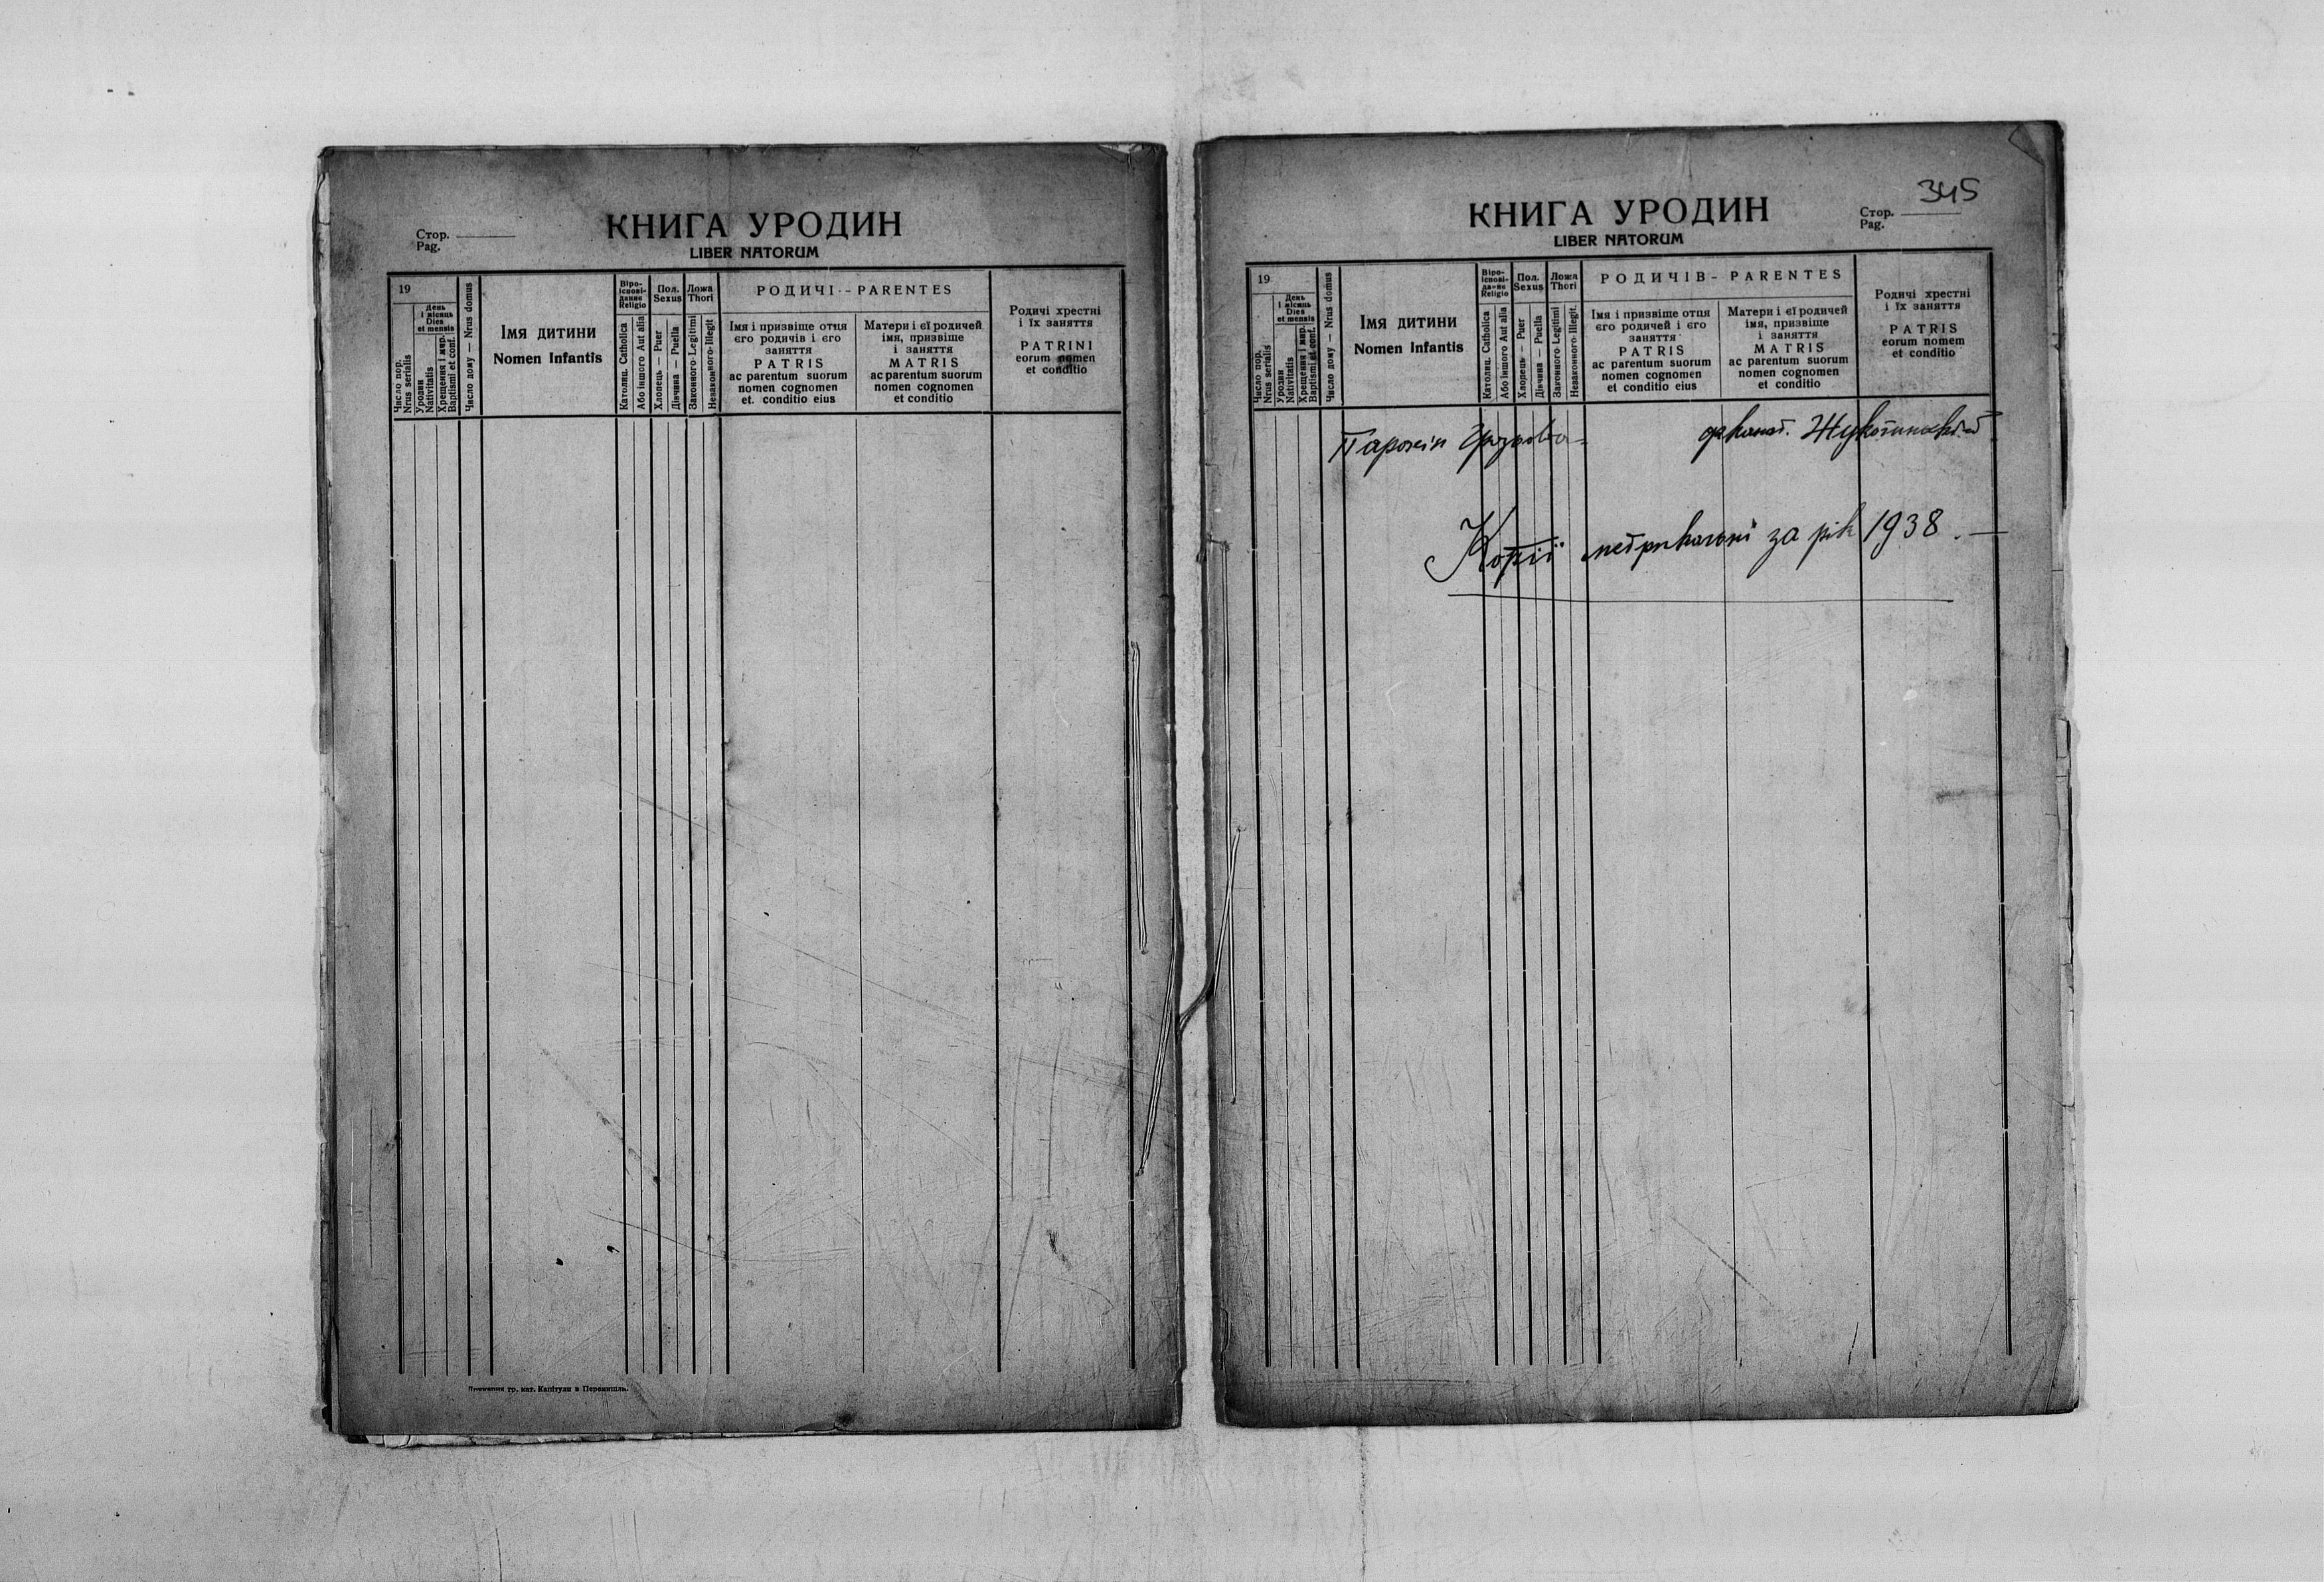 Стор.
Pag.
КНИГА УРОДИН
LIBER NATORUM
19
Число пор.
Nrus serialis
День
і місяць
Dies
et mensis
Уродин
Nativitatis
Хрещення і мир.
Baptismi et conf.
Число дому — Nrus domus
Імя дитини
Nomen Infantis
Віро-
ісповi-
данне
Religio
Католиц. Catholica
Або іншого Aut alia
Пол.
Sexus
Хлопець — Puer
Дівчина — Puella
Ложа
Thori
Законного-Legitimi
Незаконного-Illegit
РОДИЧІ -- PARENTES
Імя і призвіще отця
єго родичів і єго
заняття
PATRIS
ac parentum suorum
nomen cognomen
et. conditio eius
Матери і єї родичей
імя, призвіще
і заняття
MATRIS
ac parentum suorum
nomen cognomen
et conditio
Родичі хрестні
і їх заняття
PATRINI
eorum nomen
et conditio
гр. кат. Капітули в Перемишлі.
345
Стор.
Pag.
КНИГА УРОДИН
LIBER NATORUM
19
Число пор.
Nrus serialis
День
і місяць
Dies
et mensis
Уродин
Nativitatis
Хрещення і мир.
Baptismi et conf.
Число дому — Nrus domus
Імя дитини
Nomen Infantis
Віро-
ісповi-
данне
Religio
Католиц. Catholica
Або іншого Aut alia
Пол.
Sexus
Хлопець — Puer
Дівчина — Puella
Ложа
Thori
Законного-Legitimi
Незаконного-Illegit.
РОДИЧІВ - PARENTES
Імя і призвіще отця
єго родичей і єго
заняття
PATRIS
ac parentum suorum
nomen cognomen
et conditio eius
Матери і єї родичей
імя, призвіще
і заняття
MATRIS
ac parentum suorum
nomen cognomen
et conditio
Родичі хрестні
і їх заняття
PATRIS
eorum nomem
et conditio
Парохія деканат.
Копії метрикальні за рік 1938. —